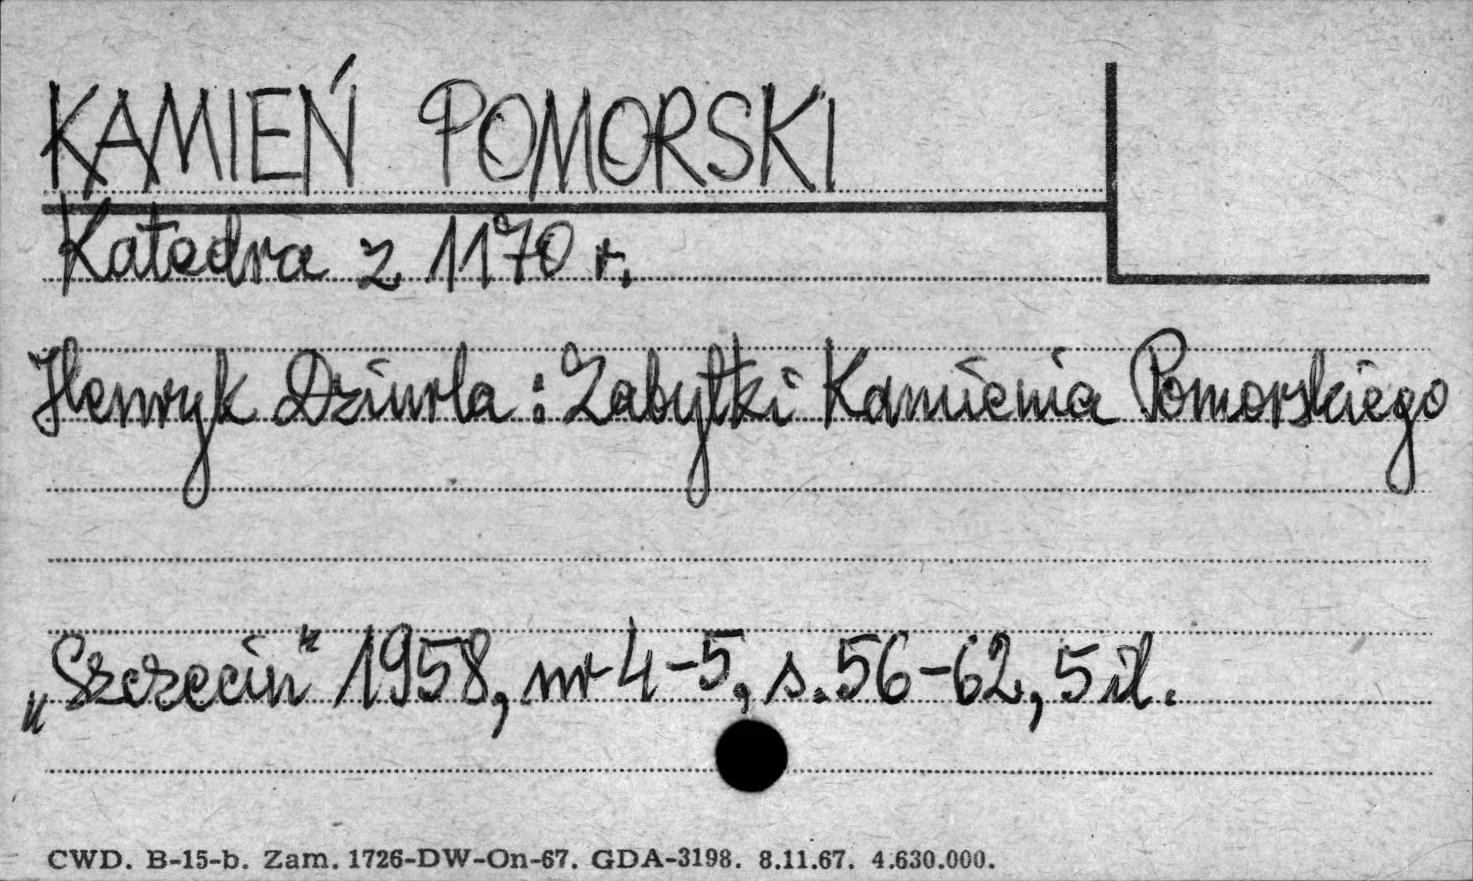 KAMIEŃ POMORSKI
Katedra z 1170 r.
Henryk Dziurla : Zabytki Kamienia Pomorskiego
„Szczecin" 1958, nr 4-5, s. 56-62, 5 il.
CWD. B-15-b. Zam. 1726-DW-On-67. GDA-3198. 8.11.67. 4.630.000.